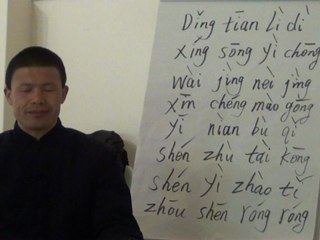 Dǐng tiān Lì dì
xíng sōng yì chōng
wài jìng nèi jìng
xīn chéng mào gōng
yī nián bù qǐ
shén zhù tài kōng
shén yì zhào tǐ
zhōu shēn róng róng